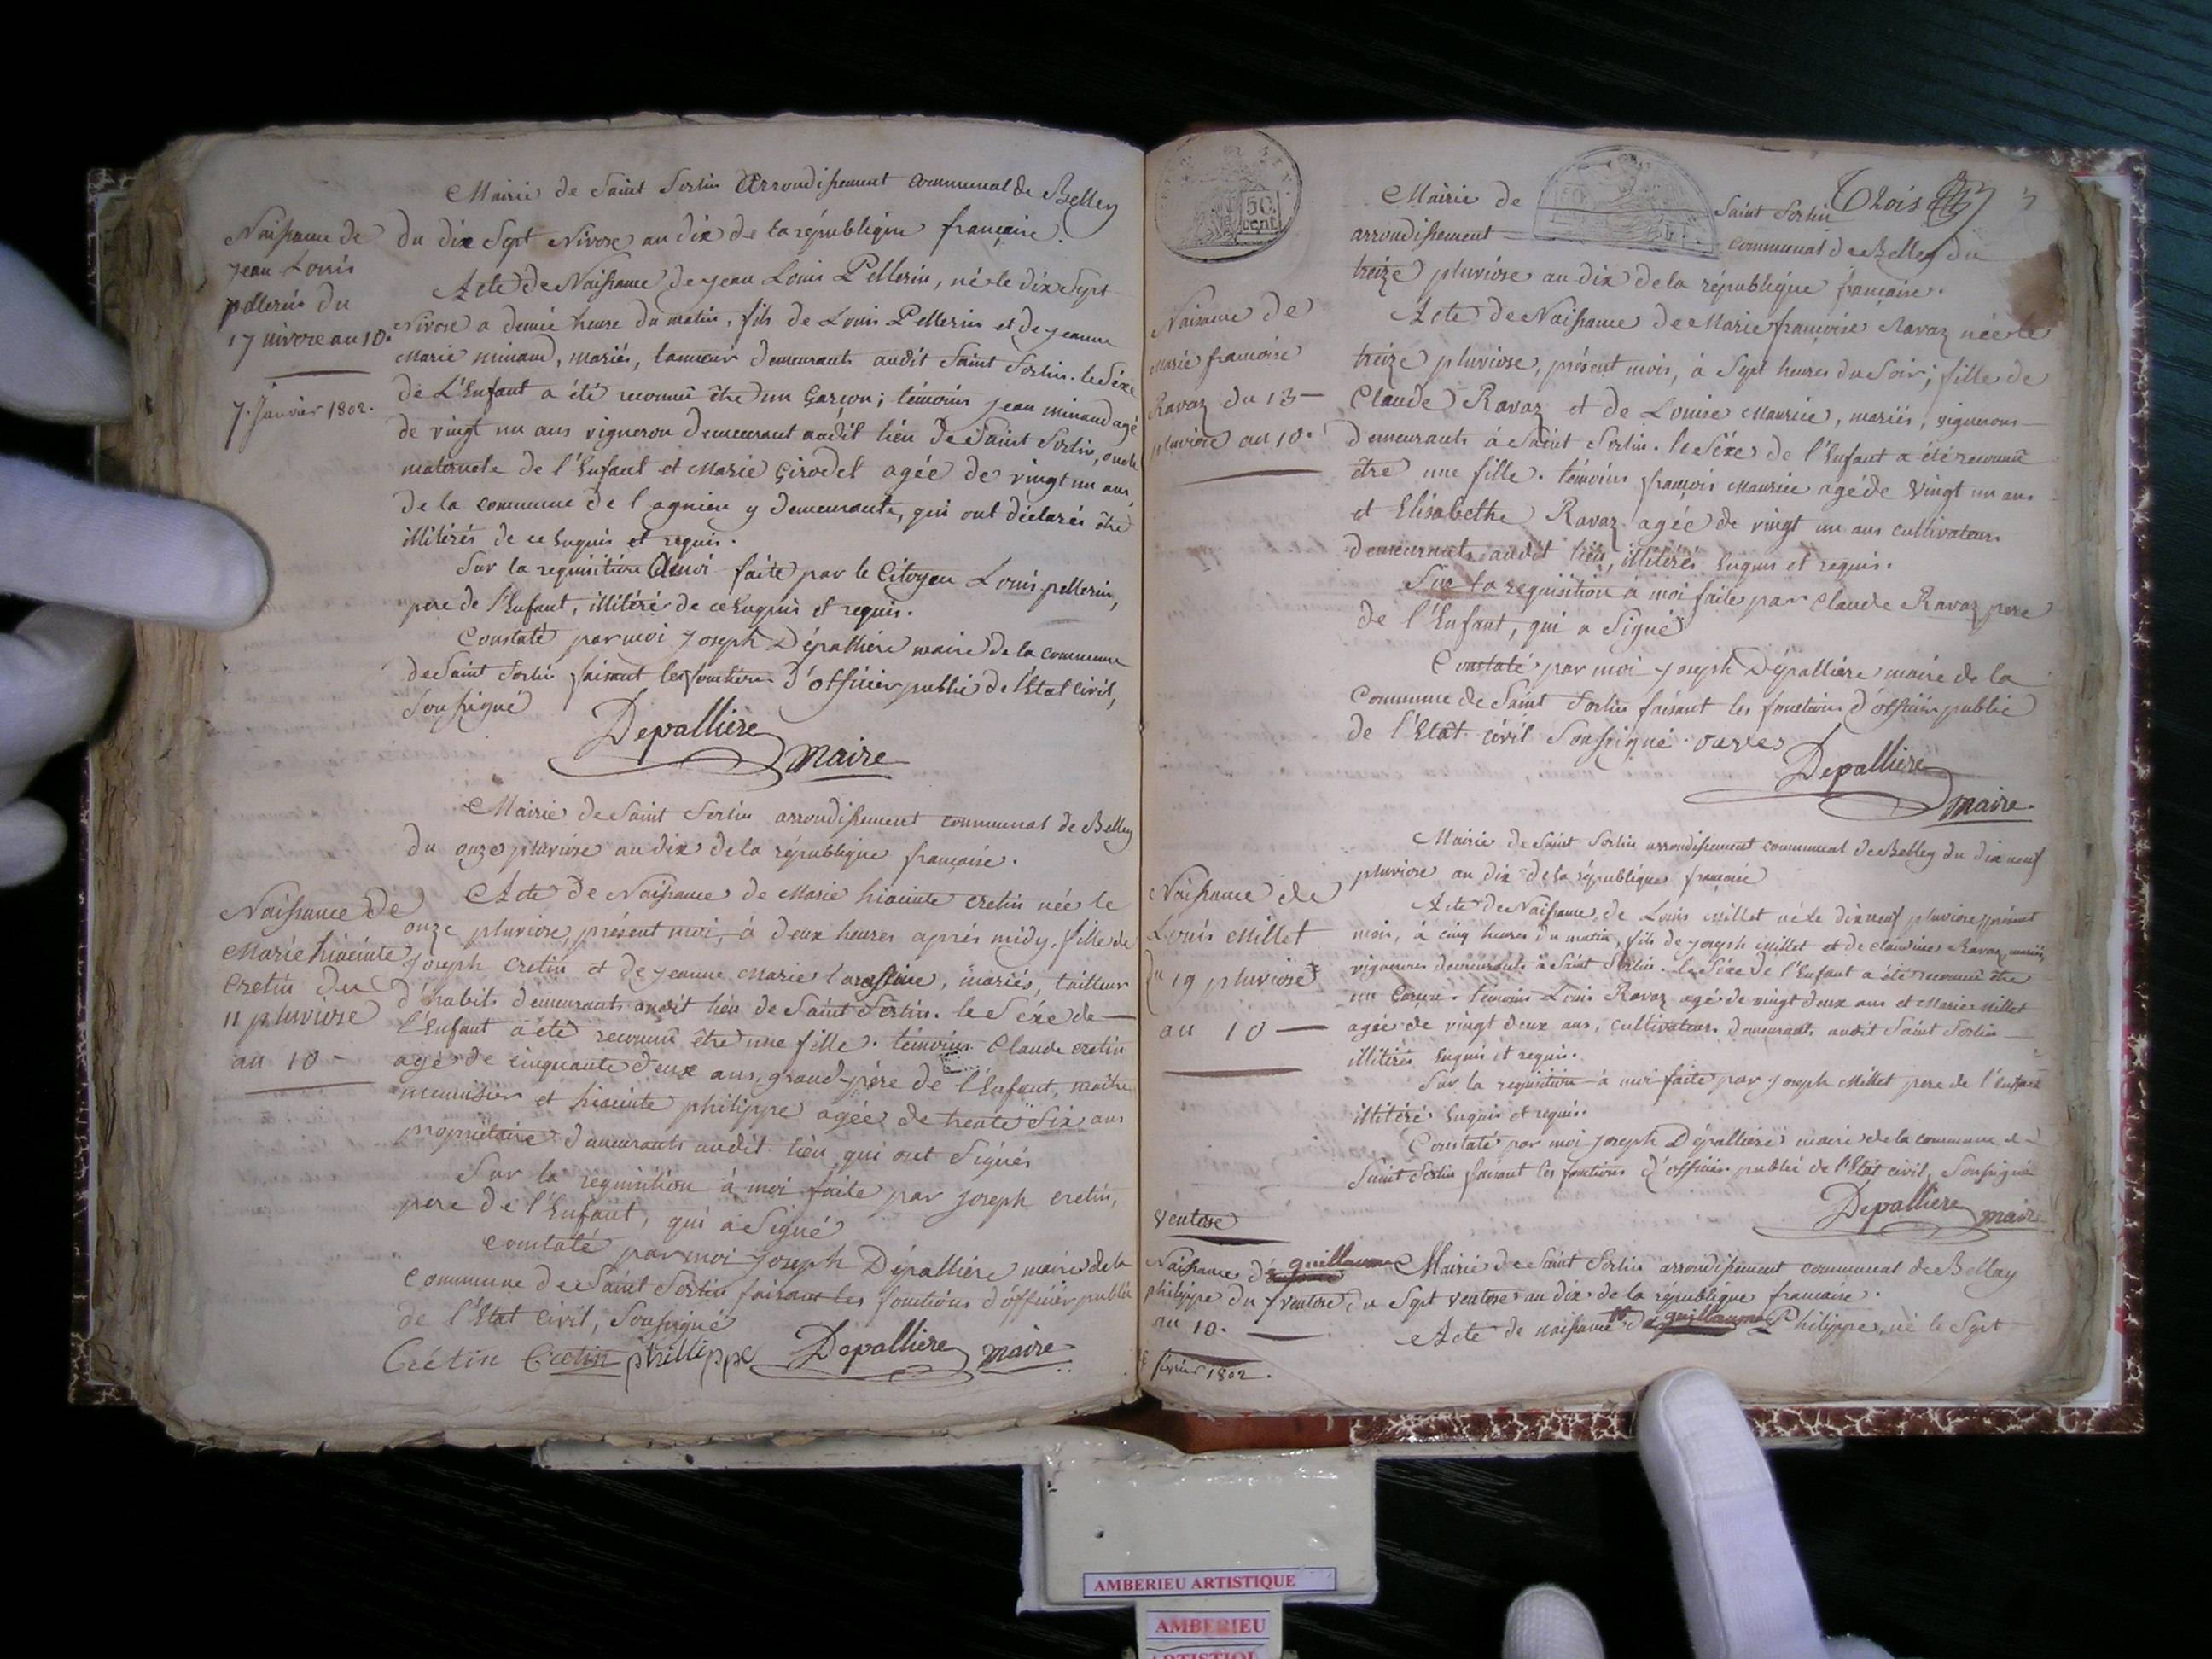 Mairie de Saint Sorlin Arrondissement communal de Belley
du dix Sept Nivose an dix de la république française.
Naissance de
Jean Louis
pellerin du
17 nivose an 10.
7. Janvier 1802.
Acte de Naissance de Jean Louis Pellerin, né le dix Sept
Nivose a demie heure du matin, fils de Louis Pellerin et de Jeanne
Marie minand, mariés, demeurants audit Saint Sorlin. le Séxe
de L'Enfant a été reconnû être un Garçon; témoins Jean minand agé
de vingt un ans vigneron demeurant audit lieu de Saint Sorlin, oncle
maternele de l'Enfant et Marie Girodet agée de vingt un ans,
de la commune de Lagnieu y demeurante, qui ont déclarés être
illitérés de ce Enquis et requis.
Sur la requisition a moi faite par le Citoyen Louis pellerin,
pere de l'Enfant, illitéré de ce Enquis et requis.
Constaté par moi Joseph Dépallière maire de la commune
de Saint Sorlin faisant les fonctions d'officier public de l'Etat civil,
Soussigné
Depallière
maire
Mairie de Saint Sorlin arrondissement communal de Belley
du onze pluviose an dix de la république française.
Naissance de
Marie hiacinte
Cretin du
11 pluviose
an 10
Acte de Naissance de Marie hiacinte cretin née le
onze pluviose, présent moi, à deux heures aprés midy, fille de
Joseph Cretin et de Jeanne Marie, mariés, tailleur
d'habits demeurants audit lieu de Saint Sorlin. le Séxe de
l'Enfant a été reconnû être une fille. témoins Claude cretin
agé de cinquante deux ans, grand-pére de l'Enfant, maitre
menuisier et hiacinte philippe agée de trente Six ans
propriétaire demeurants audit lieu qui ont Signés
Sur la requisition à moi faite par Joseph cretin,
pere de l'Enfant, qui a Signé
constaté par moi Joseph Dépallière maire de la
Commune de Saint Sorlin faisant les fonctions d'officier public
de l'Etat Civil, Soussigné
Crétin Cretin phillippe Depalliere maire
50
cent
Mairie de Saint Sorlin Trois 3
arrondissement communal de Belley du
treize pluviose an dix de la république française.
Naissance de
Marie francoise
Ravaz du 13
pluviose an 10.
Acte de Naissance de Marie françoise Ravaz née le
treize pluviose, présent mois, à Sept heures du Soir; fille de
Claude Ravaz et de Louise Maurice, mariés, vignerons
demeurants à Saint Sorlin. le Séxe de l'Enfant a été reconnû
être une fille. témoins françois Maurice agé de Vingt un ans
et Elisabethe Ravaz agée de vingt un ans cultivateurs
demeurants audit lieu, illitérés Enquis et requis.
Sur la requisition à moi faite par Claude Ravaz pere
de l'Enfant, qui a Signé
Constaté par moi Joseph Dépallière maire de la
Commune de Saint Sorlin faisant les fonctions d'officier public
de l'Etât civil Soussigné.
Depalliere
maire.
Mairie de Saint Sorlin arrondissement communal de Belley du dix neuf
pluviose an dix de la république française
Naissance de
Louis Millet
du 19 pluviose
an 10
Acte de Naissance, de Louis Millet né le dix neuf pluviose, présent
mois, à cinq heures du matin, fils de Joseph Millet et de claudine Ravaz, mariés,
vignerons demeurants à Saint Sorlin. le Séxe de l'Enfant a été reconnû être
un Garçon. témoins Louis Ravaz agé de vingt deux ans et Marie Millet
agée de vingt deux ans, cultivateurs demeurants audit Saint Sorlin
illitérés Enquis et requis.
Sur la requisition à moi faite par Joseph Millet pere de l'Enfant
illitéré Enquis et requis.
Constaté par moi Joseph Dépalliere maire de la commune de
Saint Sorlin faisant les fonctions d'officier public de l'Etat civil, Soussigné
Depalliere maire
Ventose
Naissance de guillaume
philippe du 7 ventose
an 10.
février 1802.
Mairie de Saint Sorlin arrondissement communal de Belley
du Sept ventose an dix de la république francaise.
Acte de naissance de guillaume Philippe, né le Sept
AMBERIEU ARTISTIQUE
AMBERIEU